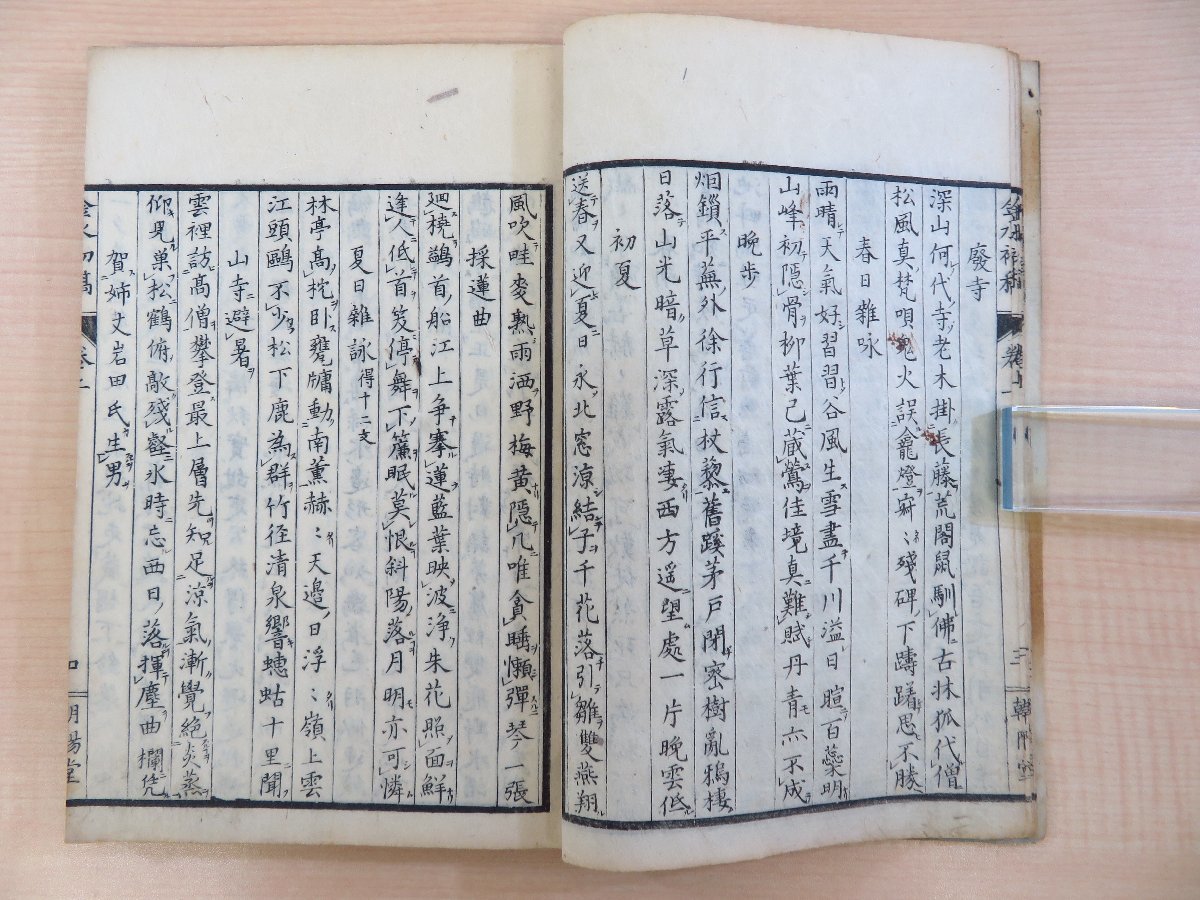 廢寺
深山何代寺老木掛長藤荒閣鼠馴佛古牀狐代僧
松風真梵唄鬼火誤龕燈寂〻殘碑下躊躇思不勝
春日雜咏
雨晴天氣好習習谷風生雪盡千川溢日暄百蘂明
山峰初隱骨柳葉已蔵鶯佳境真難賦丹青亦不成
晩歩
烟鎖平蕪外徐行信杖藜舊蹊茅戸閉密樹亂鴉棲
日落山光暗草深露氣凄西方遥望處一片晩雲低
初夏
送春又迎夏日永北窓涼結子千花落引雛雙燕翔
風吹畦麥熟雨洒野梅黄隱几唯貪睡懶彈琴一張
採蓮曲
廻橈鷁首船江上争搴蓮藍葉映波浄朱花照面鮮
逢人低首笑停舞下簾眠莫恨斜陽落月明亦可憐
夏日雜詠 得十二支
林亭高枕卧甕牖動南薫赫〻天邉日浮〻嶺上雲
江頭鷗不少松下鹿為群竹径清泉響蟪蛄十里聞
山寺避暑
雲裡訪髙僧攀登最上層先知足涼氣漸覺絶炎蒸
仰見巣松鶴俯敲殘壑氷時忘西日落揮麈曲欄凭
賀姉丈岩田氏生男